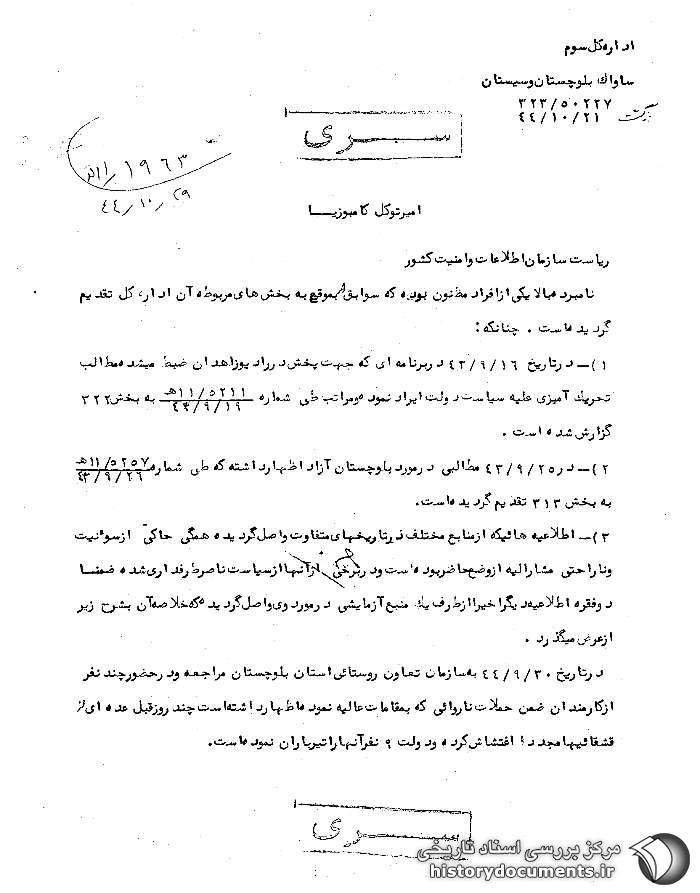 اداره کل سوم
ساواک بلوچستان و سیستان
۳۲۳/۵۰۲۲۷
۴۴/۱۰/۲۱
سری
۱۱/۱۹۶۳ه
۴۴/۱۰/۲۹
امیر توکل کامبوزیا
ریاست سازمان اطلاعات و امنیت کشور
نامبرده بالا یکی از افراد مظنون بوده که سوابق بموقع به بخش های مربوطه آن اداره کل تقدیم
گردیده است . چنانکه :
۱)- در تاریخ ۴۳/۹/۱۶ در برنامه ای که جهت پخش در رادیو زاهدان ضبط میشده مطالب
تحریک آمیزی علیه سیاست دولت ایراد نموده و مراتب طی شماره ۱۱/۵۲۱۱ه ۴۳/۹/۱۹ به بخش ۳۲۲
گزارش شده است .
۲)- در ۴۳/۹/۲۵ مطالبی در مورد بلوچستان آزاد اظهار داشته که طی شماره ۱۱/۵۲۵۷ه ۴۳/۹/۲۶
به بخش ۳۱۳ تقدیم گردیده است.
۳)- اطلاعیه هائیکه از منابع مختلف در تاریخهای متفاوت واصل گردیده همگی حاکی از سوء نیت
و ناراحتی مشارالیه از وضع حاضر بوده است و در برخی از آنها از سیاست ناصر طرفداری شده ضمنا
دو فقره اطلاعیه دیگر اخیرا از طرف یک منبع آزمایشی در مورد وی واصل گردیده که خلاصه آن بشرح زیر
از عرض میگذرد .
در تاریخ ۴۴/۹/۳۰ به سازمان تعاون روستائی استان بلوچستان مراجعه و در حضور چند نفر
از کارمندان ضمن حملات ناروائی که بمقامات عالیه نموده اظهار داشته است چند روز قبل عده ای از
قشقائیها مجددا اغتشاش کرده و دولت ۹ نفر آنها را تیرباران نموده است.
سری
مرکز بررسی اسناد تاریخی
historydocuments.ir